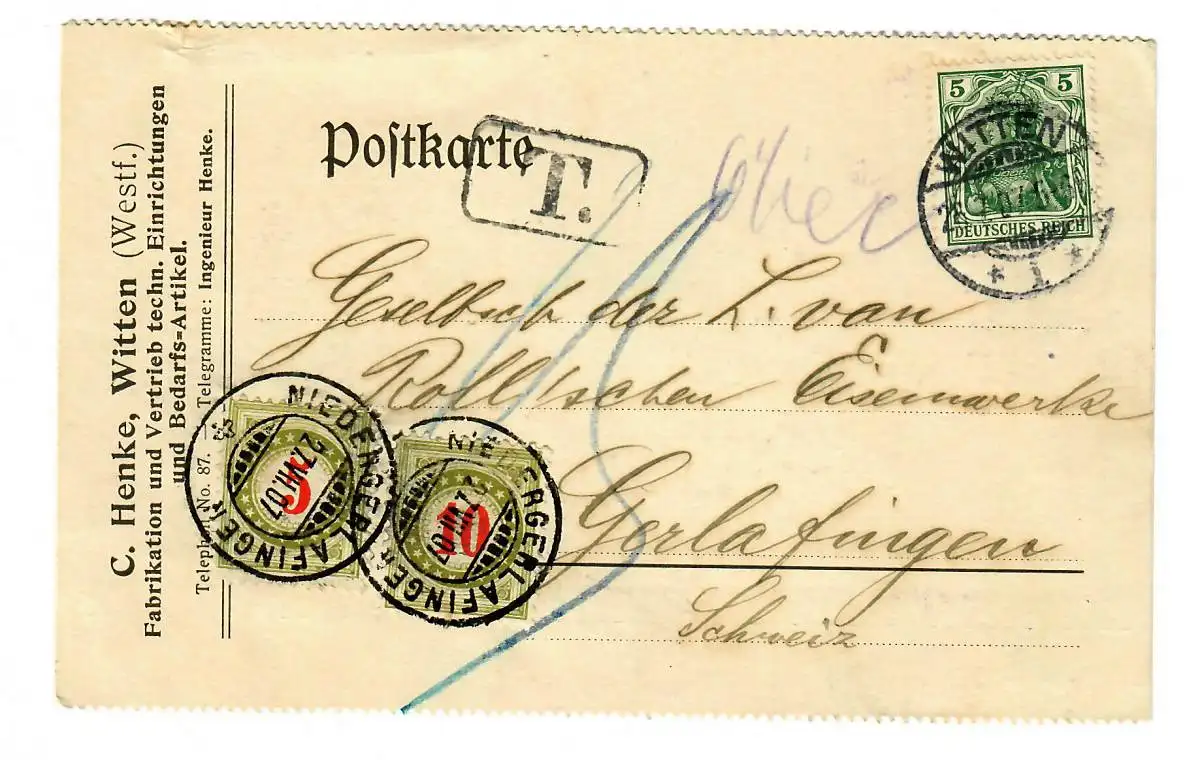 C. Henke, Witten (Westf.)
Fabrikation und Vertrieb techn. Einrichtungen
und Bedarfs-Artikel.
Telephon No. 87. — Telegramme: Ingenieur Henke.
Postkarte
T.
5
5
DEUTSCHES REICH
WITTEN
1
Gesellsch der L. von
Roll'schen Eisenwerke
Gerlafingen
Schweiz
15
5
NIEDERGERLAFINGEN
27.VII.07
10
NIEDERGERLAFINGEN
27.VII.07